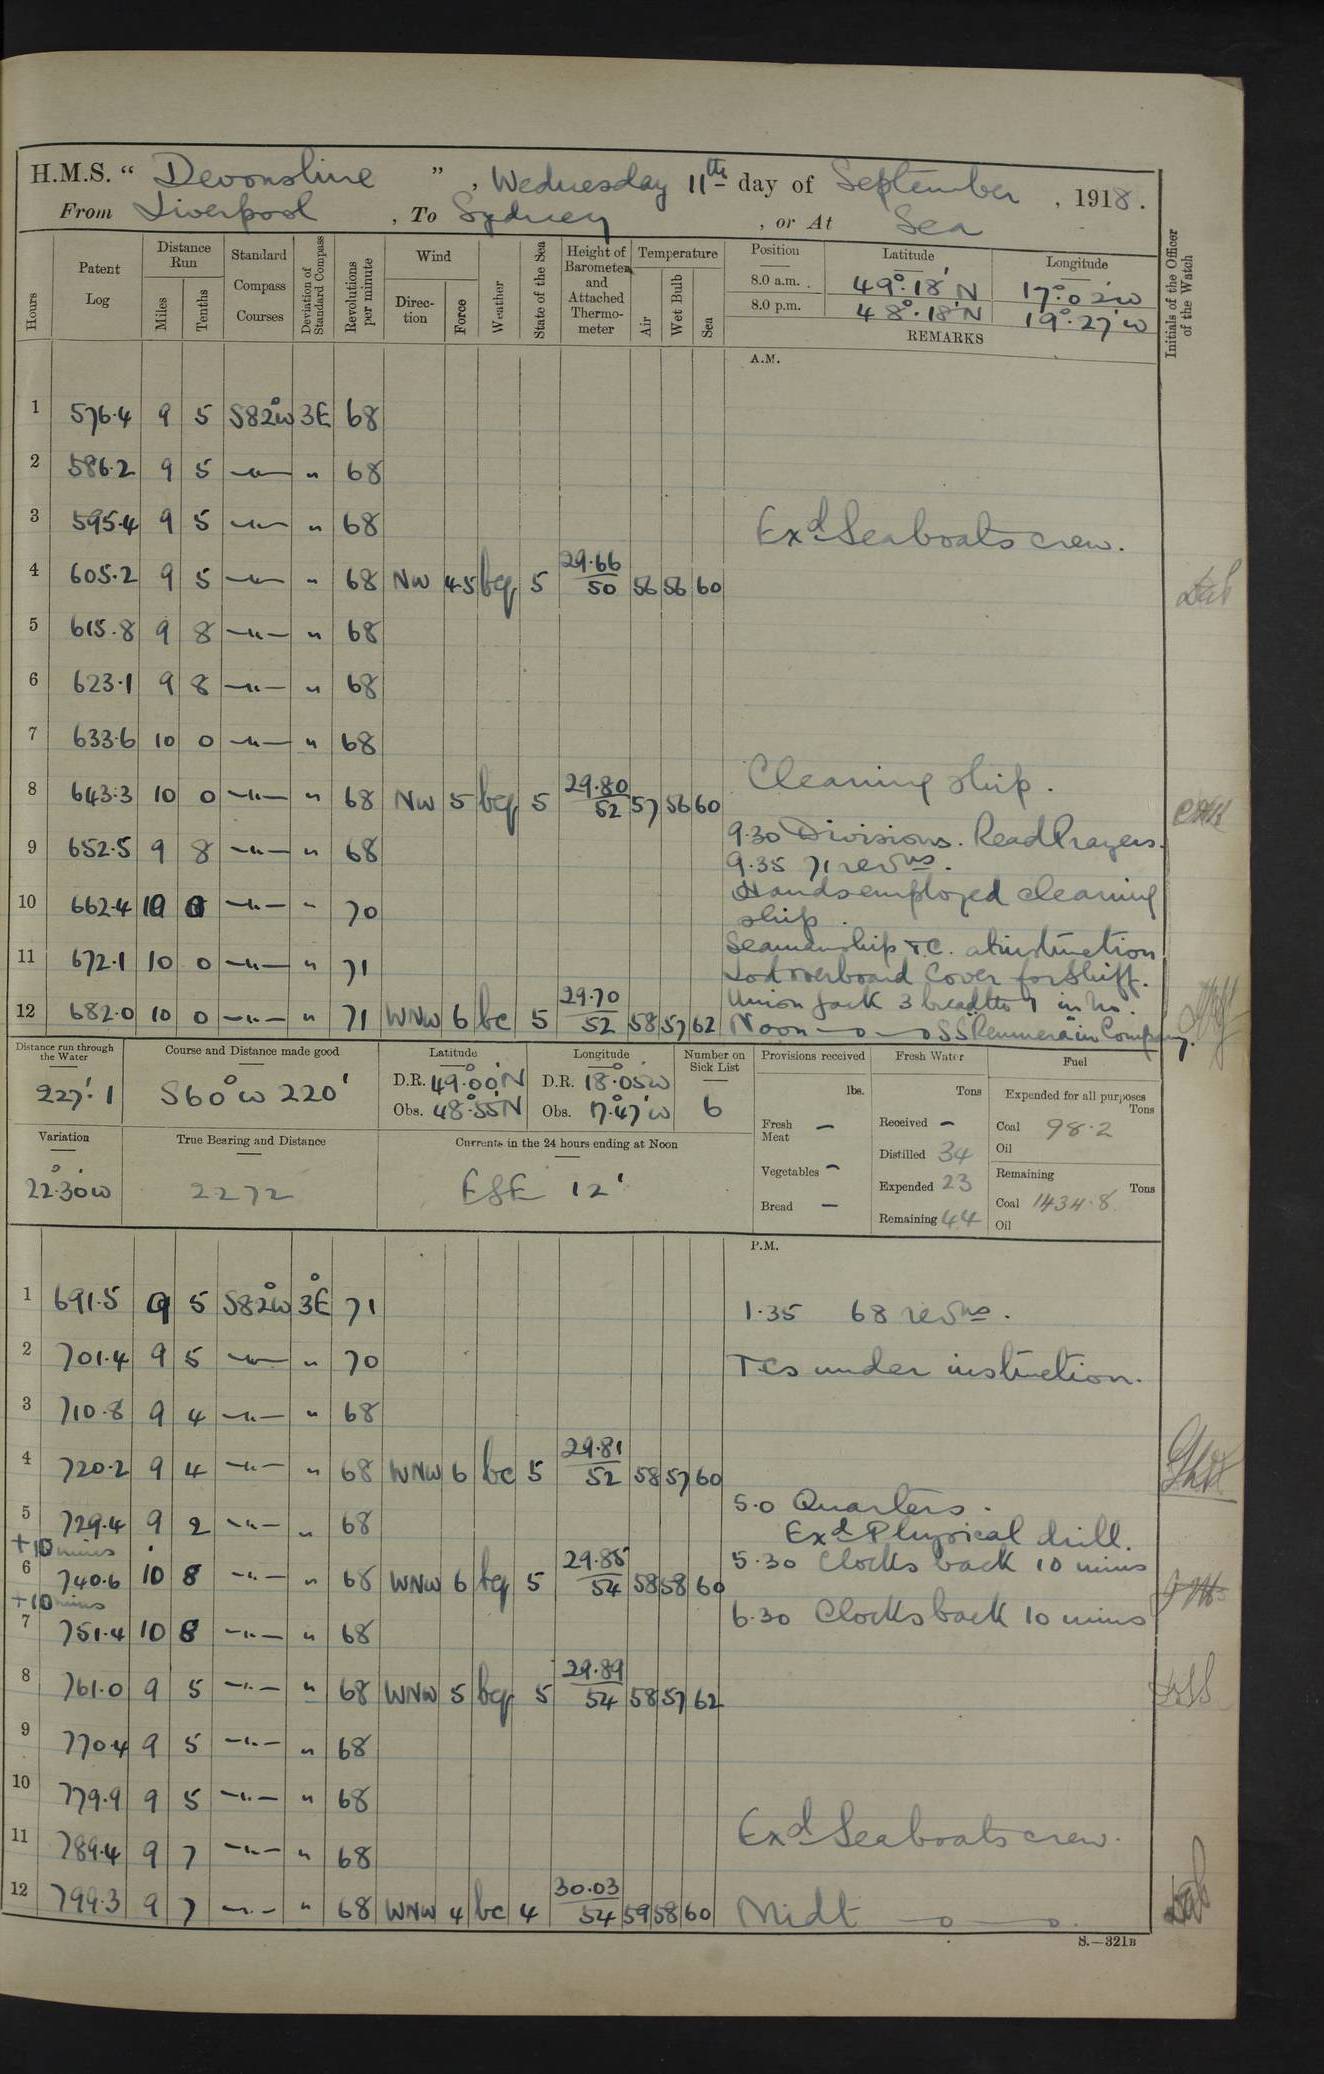 H.M.S. “ Devonshire ” , Wednesday 11th day of September , 1918.
From Liverpool , To Sydney , or At Sea
Hours
Patent Log
Distance Run
Miles
Tenths
Standard Compass Courses
Deviation of Standard Compass
Revolutions per minute
Wind
Direction
Force
Weather
State of the Sea
Height of Barometer and Attached Thermometer
Temperature
Air
Wet Bulb
Sea
Position
Latitude
Longitude
8.0 a.m. . 49°.18' N 17°.02'W
8.0 p.m. 48°.18'N 19°.27'W
REMARKS
Initials of the Officer of the Watch
A.M.
1 576.4 9 5 S82°W 3E 68
2 586.2 9 5 —"— " 68
3 595.4 9 5 —"— " 68 Exd Seaboats crew.
4 605.2 9 5 —"— " 68 NW 4.5 bcq 5 29.66/50 56 56 60
5 615.8 9 8 —"— " 68
6 623.1 9 8 —"— " 68
7 633.6 10 0 —"— " 68
8 643.3 10 0 —"— " 68 NW 5 bcq 5 29.80/52 57 56 60 Cleaning ship.
9 652.5 9 8 —"— " 68 9.30 Divisions. Read Prayers.
9.35 71 revns.
10 662.4 10 0 —"— " 70 Hands employed cleaning
ship.
11 672.1 10 0 —"— " 71 Seamanship T.C. at instruction
Lost overboard Cover for Skiff.
12 682.0 10 0 —"— " 71 WNW 6 bc 5 29.70/52 58 57 62 Union Jack 3 breadths 1 in No.
Noon —o—o SS Remuera in Company.
Distance run through the Water
227'.1
Course and Distance made good
S60°W 220'
Latitude
D.R. 49°.00'N
Obs. 48°.55'N
Longitude
D.R. 18°.05W
Obs. 17°.47'W
Number on Sick List
6
Provisions received
lbs.
Fresh Meat —
Vegetables —
Bread —
Fresh Water
Tons
Received —
Distilled 34
Expended 23
Remaining 44
Fuel
Expended for all purposes
Tons
Coal 98.2
Oil
Remaining
Tons
Coal 1434.8
Oil
Variation
22°.30'W
True Bearing and Distance
2272
Currents in the 24 hours ending at Noon
ESE 12'
P.M.
1 691.5 9 5 S82°W 3°E 71 1.35 68 revns.
2 701.4 9 5 —"— " 70 T.Cs under instruction.
3 710.8 9 4 —"— " 68
4 720.2 9 4 —"— " 68 WNW 6 bc 5 29.81/52 58 57 60
5 729.4 9 2 —"— " 68 5.0 Quarters.
Exd Physical drill.
+10 mins
6 740.6 10 8 —"— " 68 WNW 6 bcq 5 29.85/54 58 58 60 5.30 Clocks back 10 mins
+10 mins
7 751.4 10 8 —"— " 68 6.30 Clocks back 10 mins
8 761.0 9 5 —"— " 68 WNW 5 bcq 5 29.89/54 58 57 62
9 770.4 9 5 —"— " 68
10 779.9 9 5 —"— " 68
11 789.4 9 7 —"— " 68 Exd Seaboats crew.
12 799.3 9 7 —"— " 68 WNW 4 bc 4 30.03/54 59 58 60 Midt —o—o.
S.—321B